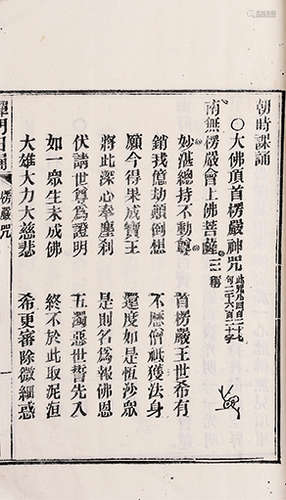 朝時課誦
○大佛頂首楞嚴神咒 此咒凡四百二十七
句二千六百二十字
南無楞嚴會上佛菩薩三稱
妙湛總持不動尊 首楞嚴王世希有
銷我億劫顛倒想 不歷僧祇獲法身
願今得果成寶王 還度如是恆沙眾
將此深心奉塵刹 是則名為報佛恩
伏請世尊為證明 五濁惡世誓先入
如一眾生未成佛 終不於此取泥洹
大雄大力大慈悲 希更審除微細惑
禪門日誦 楞嚴咒